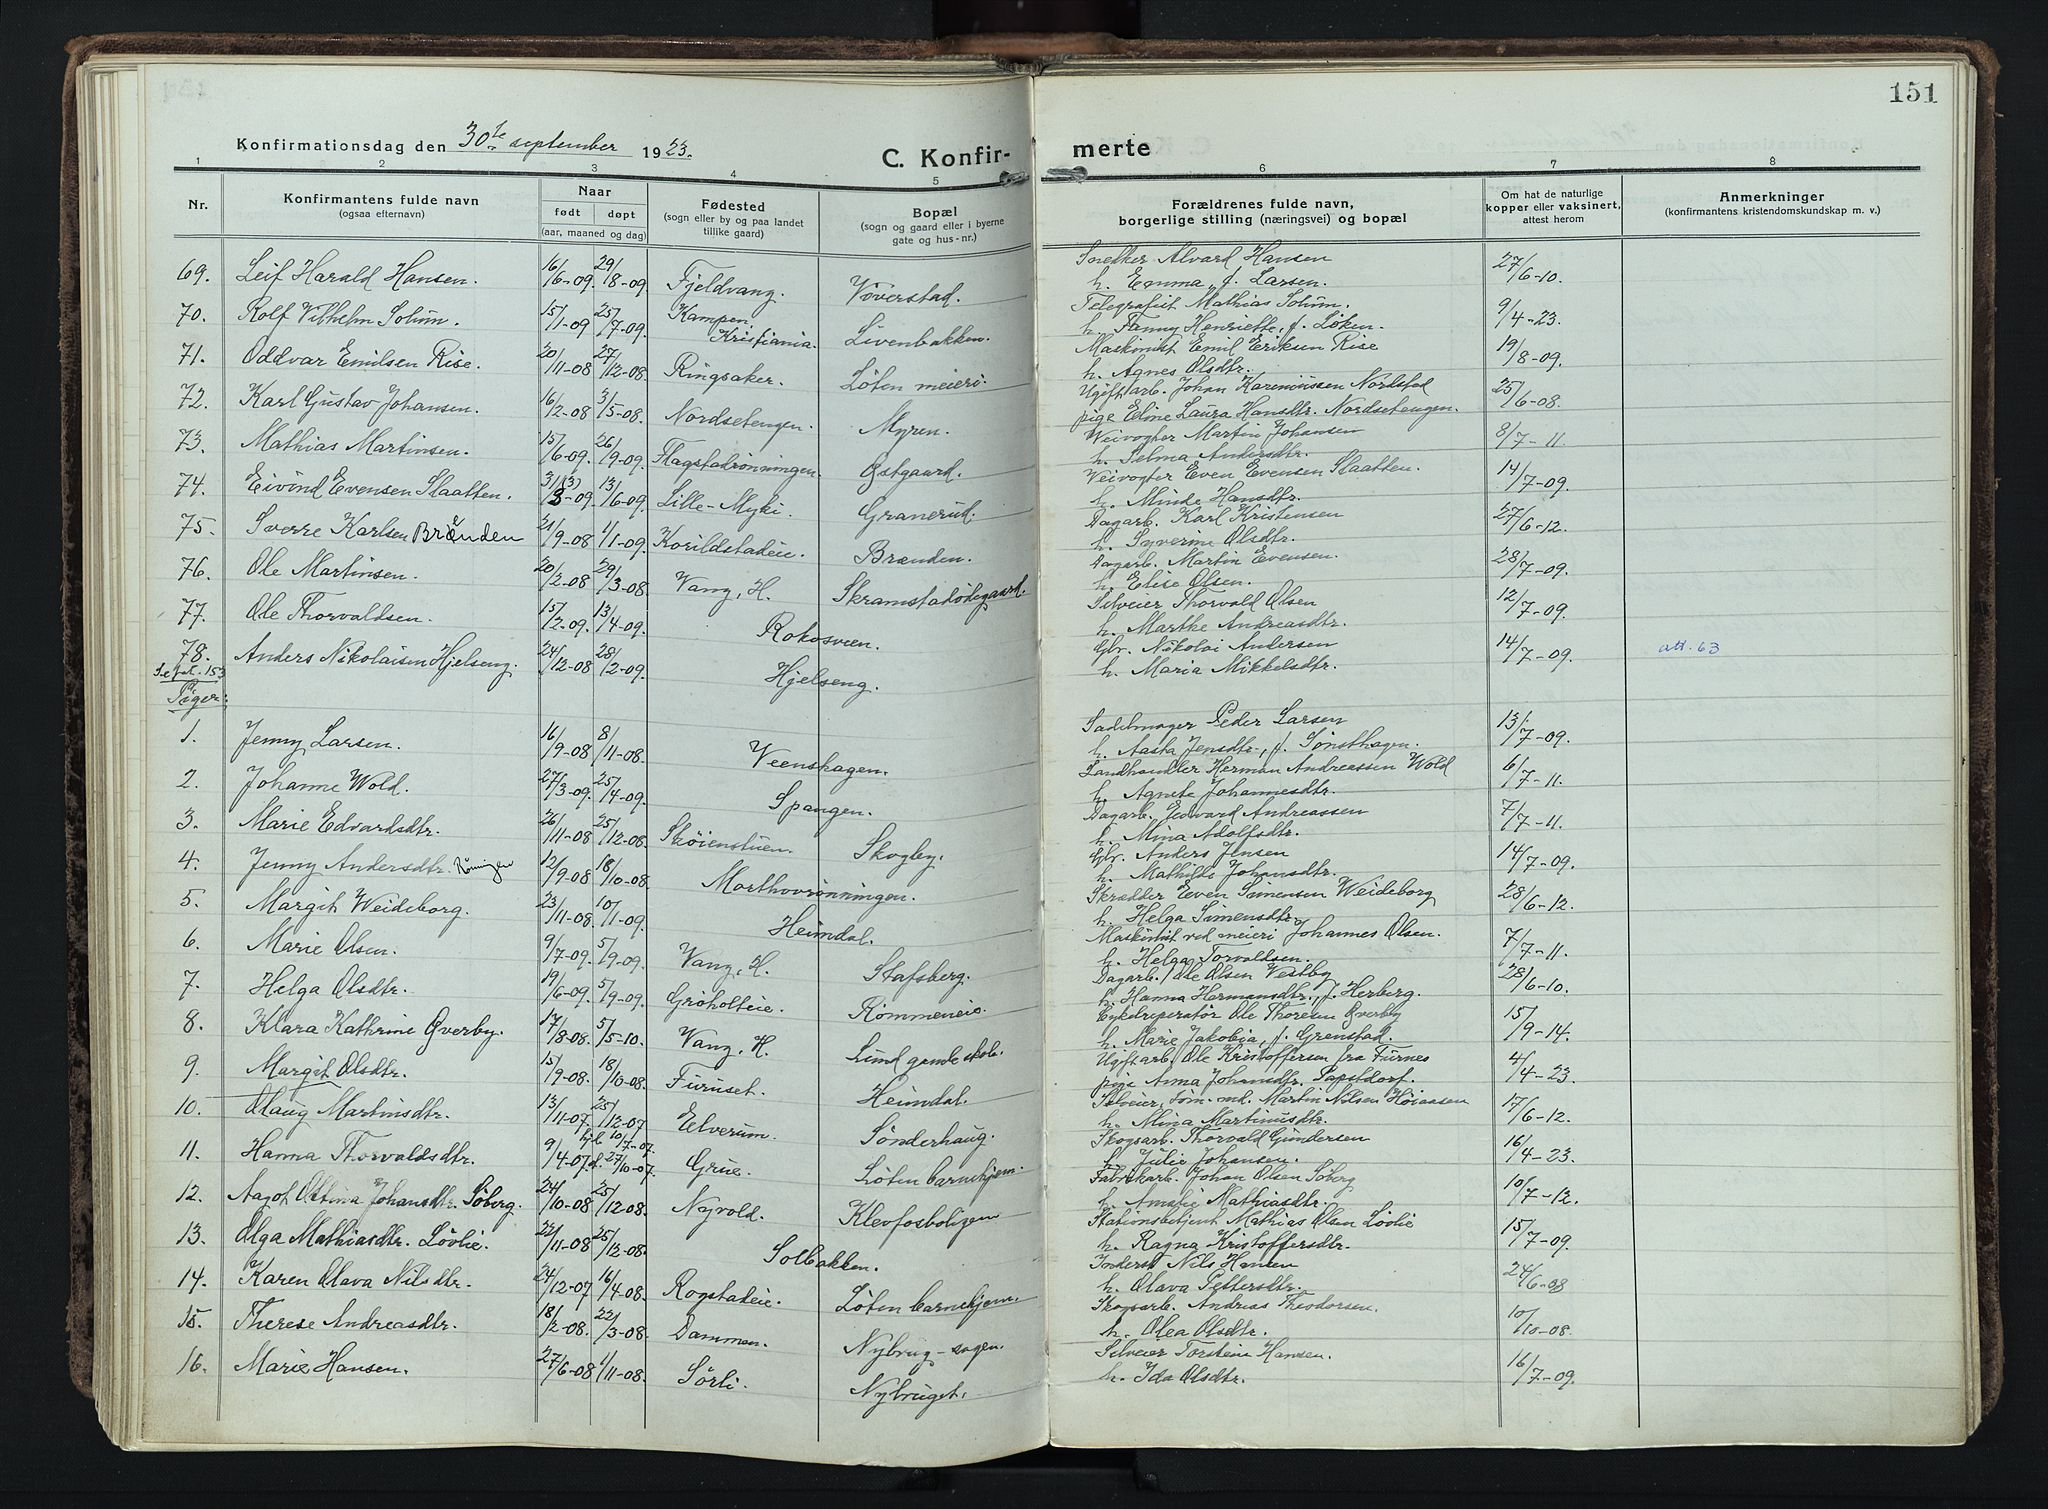 151
Konfirmationsdag den 30te september 1923.
C. Konfir-
merte
1 2 3 4 5 6 7 8
Nr.
Konfirmantens fulde navn
(ogsaa efternavn)
Naar
født døpt
(aar, maaned og dag)
Fødested
(sogn eller by og paa landet
tillike gaard)
Bopæl
(sogn og gaard eller i byerne
gate og hus-nr.)
Forældrenes fulde navn,
borgerlige stilling (næringsvei) og bopæl
Om hat de naturlige
kopper eller vaksinert,
attest herom
Anmerkninger
(konfirmantens kristendomskundskap m. v.)
69. Leif Harald Hansen. 16/6-09 29/8-09. Fjeldvang. Vøverstad. Snekker Alvard Hansen 27/6-10.
h. Emma, f. Larsen.
70. Rolf Vilhelm Solum. 15/1-09 25/7-09. Kampen, Kristiania. Livenbakken. Telegrafist Mathias Solum. 9/4-23.
h. Fanny Henriette, f. Løken.
71. Oddvar Emilsen Rise. 20/11-08 27/12-08. Ringsaker. Løten meieri. Maskinist Emil Eriksen Rise 19/8-09.
h. Agnes Olsdtr.
72. Karl Gustav Johansen. 16/2-08 3/5-08. Nordsetengen. Myren. Ugift arb. Johan Kareniussen Nordstad 25/6-08.
pige Eline Laura Hansdtr. Nordsetengen.
73. Mathias Martinsen. 15/6-09. 26/9-09. Flagstadrønningen. Østgaard. Veivogter Martin Johansen 8/7-11.
h. Selma Andersdtr.
74. Eivind Evensen Slaatten. 31/3-09 (3) 13/6-09. Lille-Myki. Granerud. Veivogter Even Evensen Slaatten. 14/7-09.
h. Minde Hansdtr.
75. Sverre Karlsen Brænden 21/9-08 1/1-09. Korildstadeie. Brænden. Dagarb. Karl Kristensen 27/6-12.
h. Syverine Olsdtr.
76. Ole Martinsen. 20/2-08 29/3-08. Vang, H. Skramstadødegaard. Dagarb. Martin Evensen. 28/7-09.
h. Elise Olsen.
77. Ole Thorvaldsen. 15/2-09. 13/4-09. Rokosveen. Selveier Thorvald Olsen 12/7-09.
h. Marthe Andreasdtr.
78. Anders Nikolaisen Hjelseng. 24/12-08 28/2-09. Hjelseng. Gbr. Nikolai Andersen 14/7-09. att. 63
h. Maria Mikkelsdtr.
Se fol. 153
Piger:
1. Jenny Larsen. 16/9-08 8/11-08. Veenshagen. Sadelmager Peder Larsen 13/7-09.
h. Aasta Jensdtr., f. Sønsthagen.
2. Johanne Wold. 27/3-09. 25/4-09. Spangen. Landhandler Herman Andreassen Wold 6/7-11.
h. Agnete Johannesdtr.
3. Marie Edvardsdtr. 26/11-08 25/12-08. Skøienstuen. Skogby. Dagarb. Edvard Andreassen 7/7-11.
h. Mina Adolfsdtr.
4. Jenny Andersdtr. Røningen 12/9-08 18/10-08. Morthovrønningen. Gbr. Anders Jensen 14/7-09.
h. Mathilde Johansdtr.
5. Margit Weideborg. 23/11-08. 10/1-09. Heimdal. Skrædder Even Simensen Weideborg 28/6-12.
h. Helga Simensdtr.
6. Marie Olsen. 9/7-09. 5/9-09. Vang, H. Stafsberg. Maskinist ved meieri Johannes Olsen. 7/7-11.
h. Helga Torvaldsen.
7. Helga Olsdtr. 19/6-09. 5/9-09. Grøholteie. Rømmeneie. Dagarb. Ole Olsen Vestby 28/6-10.
h. Hanna Hermansdtr., f. Herberg.
8. Klara Kathrine Øverby. 17/8-08. 5/5-10. Vang, H. Lund gamle skole. Cykelreperatør Ole Thoresen Øverby 15/9-14.
h. Marie Jakobia, f. Grenstad.
9. Margit Olsdtr. 15/9-08. 18/10-08. Furuset. Heimdal. Ugift arb. Ole Kristoffersen fra Furnes 4/4-23.
pige Anna Johansdtr. Papstdorf.
10. Olaug Martinsdtr. 13/11-07 25/12-07 Elverum. Sønderhaug. Selveier, tøm.-md. Martin Nilsen Høiaasen 17/6-12.
h. Mina Martinusdtr.
11. Hanna Thorvaldsdtr. 9/4-07 hjd. 10/7-07. d. 27/10-07. Grue. Løten barnehjem. Skogsarb. Thorvald Gundersen 16/4-23.
h. Julie Johansen.
12. Aagot Ottina Johansdtr. Søberg. 24/10-08 25/12-08. Nyvold. Klevfosboligen Fabrikarb. Johan Olsen Søberg 10/7-12.
h. Amalie Mathiasdtr.
13. Olga Mathiasdtr. Løvlie. 22/11-08 25/12-08. Solbakken. Stationsbetjent Mathias Olsen Løvlie 15/7-09.
h. Ragna Kristoffersdtr.
14. Karen Olava Nilsdtr. 24/12-07 16/4-08. Rogstadeie. Løten barnehjem. Inderst Nils Hansen 24/6-08
h. Olava Pettersdtr.
15. Therese Andreasdtr. 18/2-08. 22/3-08. Dammen. Nybrug-sagen. Skogsarb. Andreas Theodorsen. 10/10-08.
h. Olea Olsdtr.
16. Marie Hansen. 27/6-08 1/11-08. Sørli. Nybruget. Selveier Torstein Hansen. 16/7-09.
h. Ida Olsdtr.